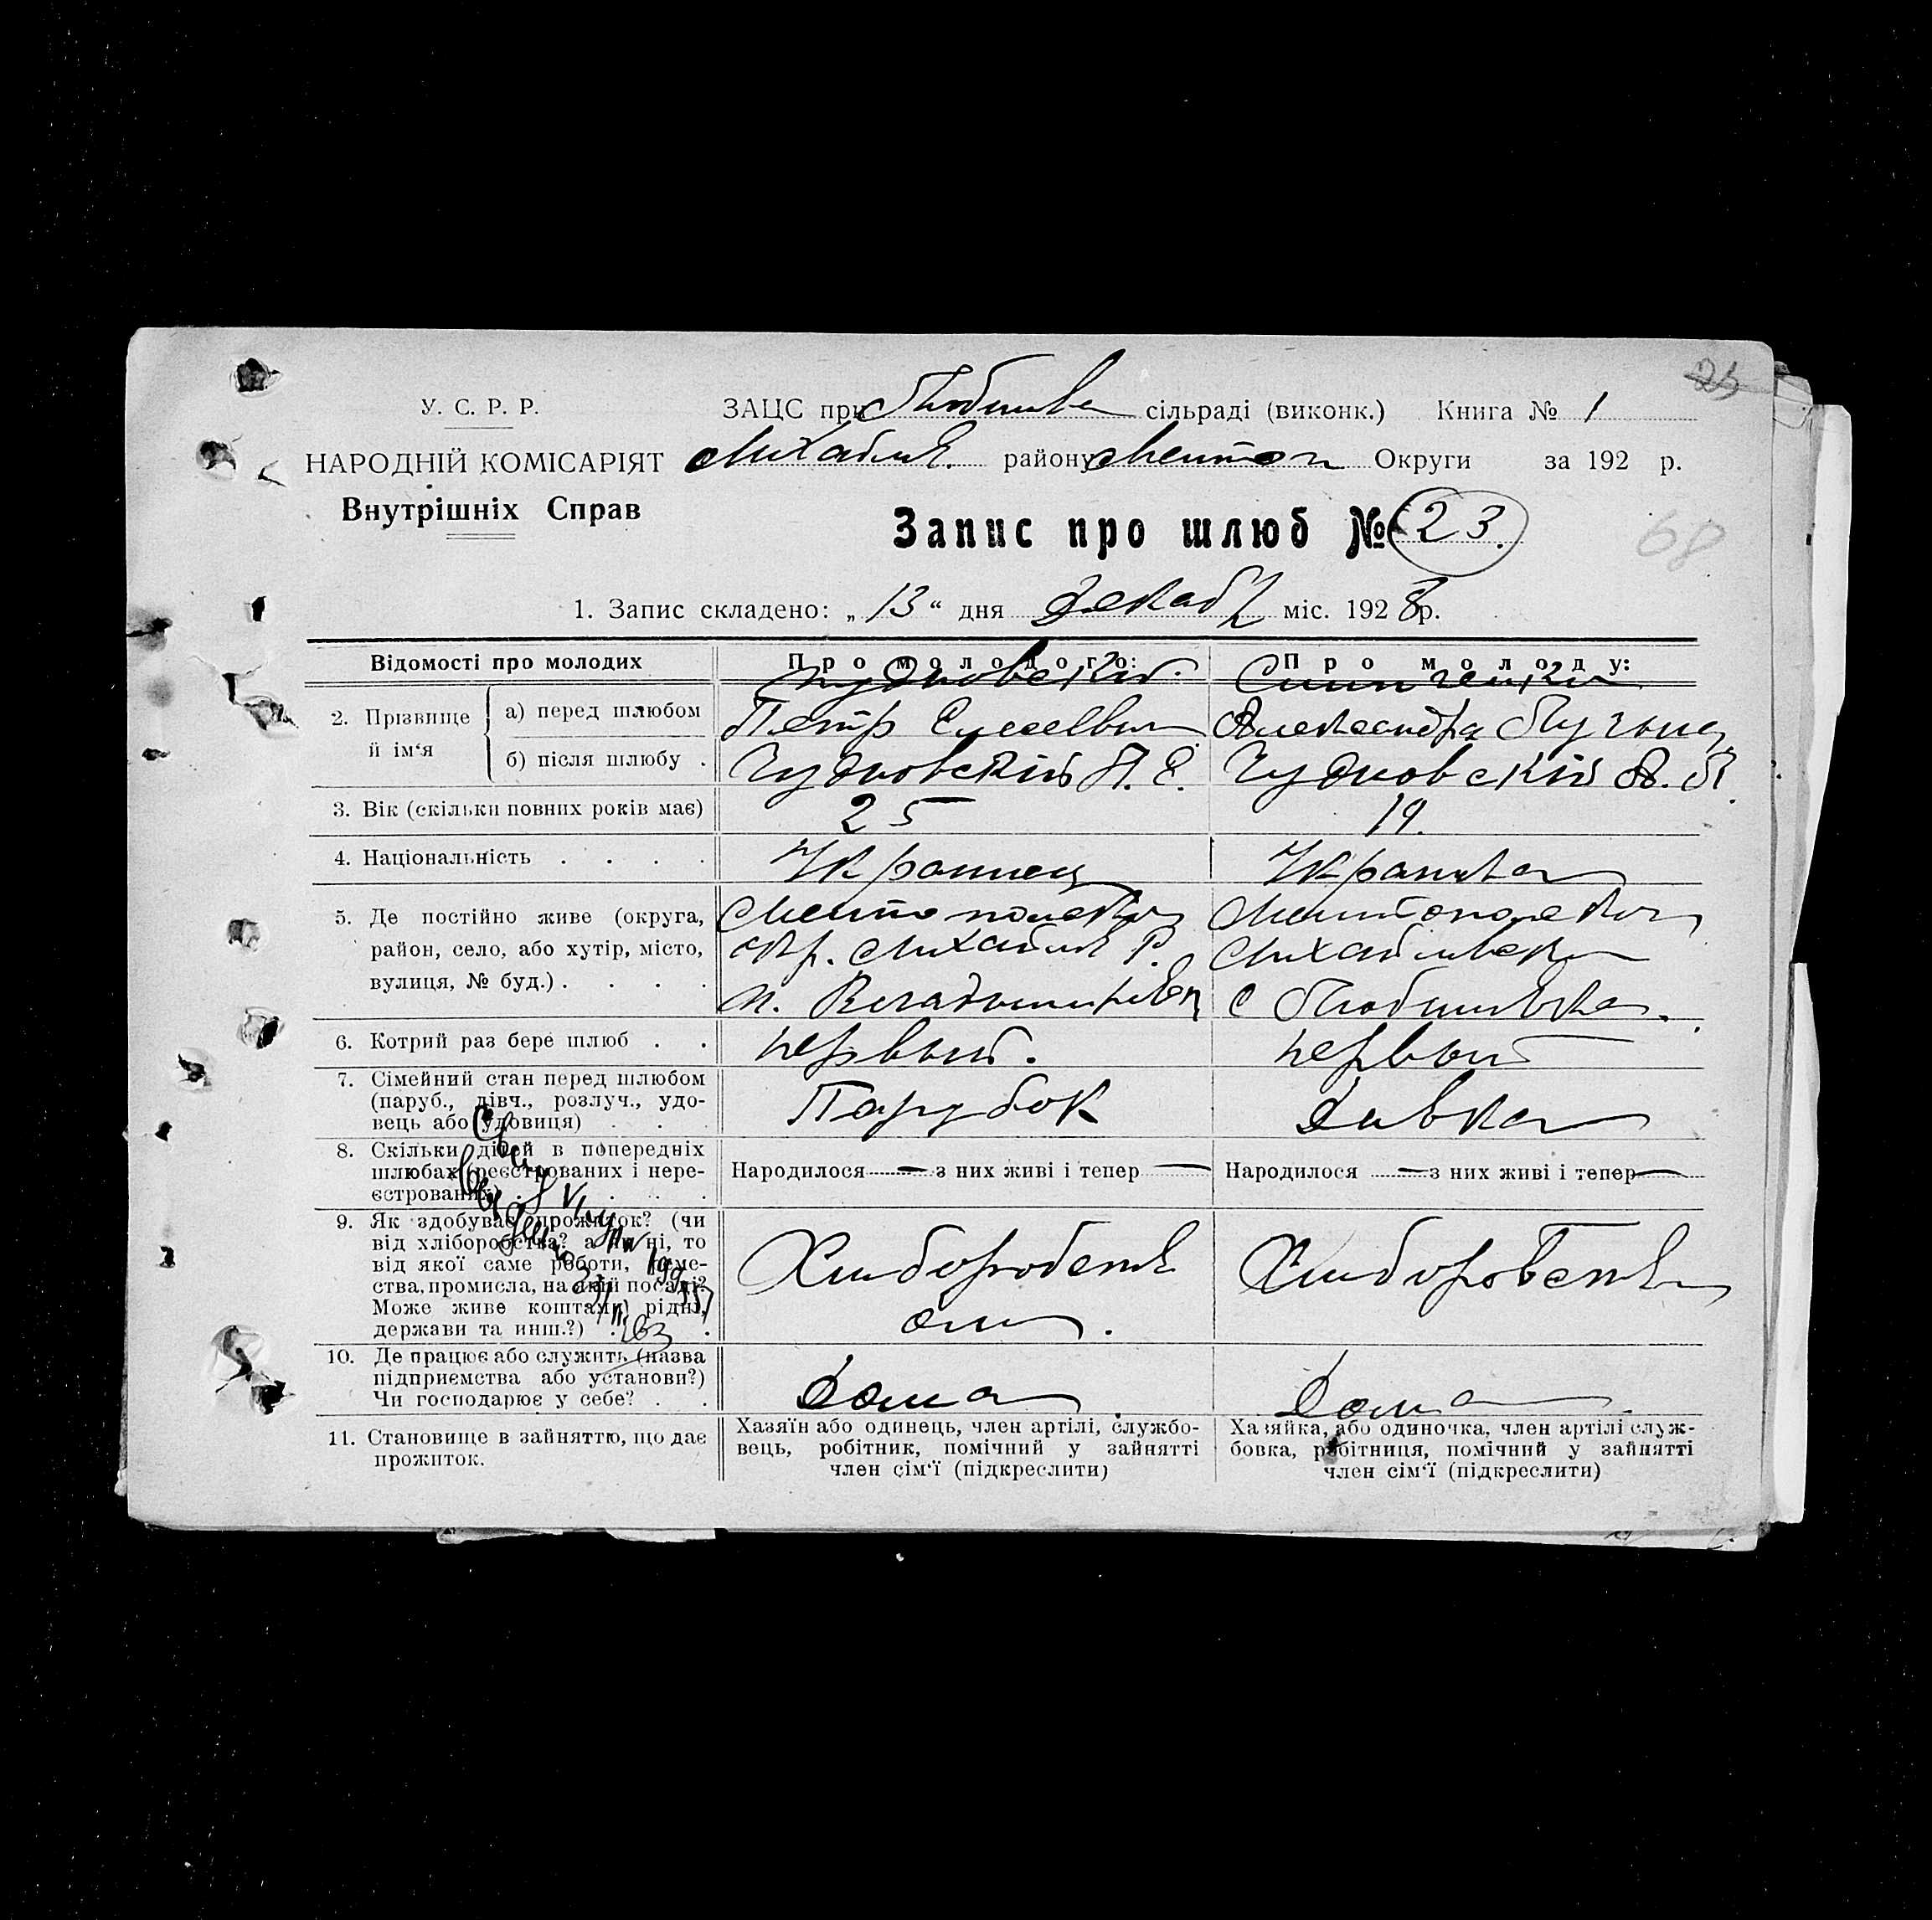 23
У. С. Р. Р.
ЗАЦС при Любимів сільраді (виконк.) Книга № 1
НАРОДНІЙ КОМІСАРІЯТ
Михайлів. району Мелітоп Округи за 192 р.
Внутрішніх Справ
Запис про шлюб № 23.
68
1. Запис складено: „13“ дня Декаб міс. 1928 р.
Відомості про молодих
Про молодого:
Про молоду:
2. Прізвище й ім‘я
а) перед шлюбом
Чудновский.
Петр
Александра
б) після шлюбу .
Чудновский П. Е.
Чудновский А.
3. Вік (скільки повних років має)
25
19.
4. Національність . . . .
Украинец
Украинка
5. Де постійно живе (округа,
район, село, або хутір, місто,
вулиця, № буд.) . . . .
Мелитопольск
окр. Михайлів Р.
п. Владимировк
Мелитопольск
Михайлівск
с Любимівка.
6. Котрий раз бере шлюб . .
первый.
первый
7. Сімейний стан перед шлюбом
(паруб., дівч., розлуч., удо-
вець або удовиця) . . .
Парубок
Дивка
8. Скільки дітей в попередніх
шлюбах (реєстрованих і нере-
єстрованих) . . . .
Народилося — з них живі і тепер —
Народилося — з них живі і тепер —
9. Як здобуває прожиток? (чи
від хліборобства? а як ні, то
від якої саме роботи, реме-
ства, промисла, на якій посаді?
Може живе коштами рідні,
держави та инш.?) . .
Хлиборобств
ом.
Хлиборобств
10. Де працює або служить (назва
підприємства або установи?)
Чи господарює у себе? . .
Дома
Дома
11. Становище в зайняттю, що дає
прожиток.
Хазяїн або одинець, член артілі, службо-
вець, робітник, помічний у зайнятті
член сім‘ї (підкреслити)
Хазяйка, або одиночка, член артілі служ-
бовка, робітниця, помічний у зайнятті
член сім‘ї (підкреслити)